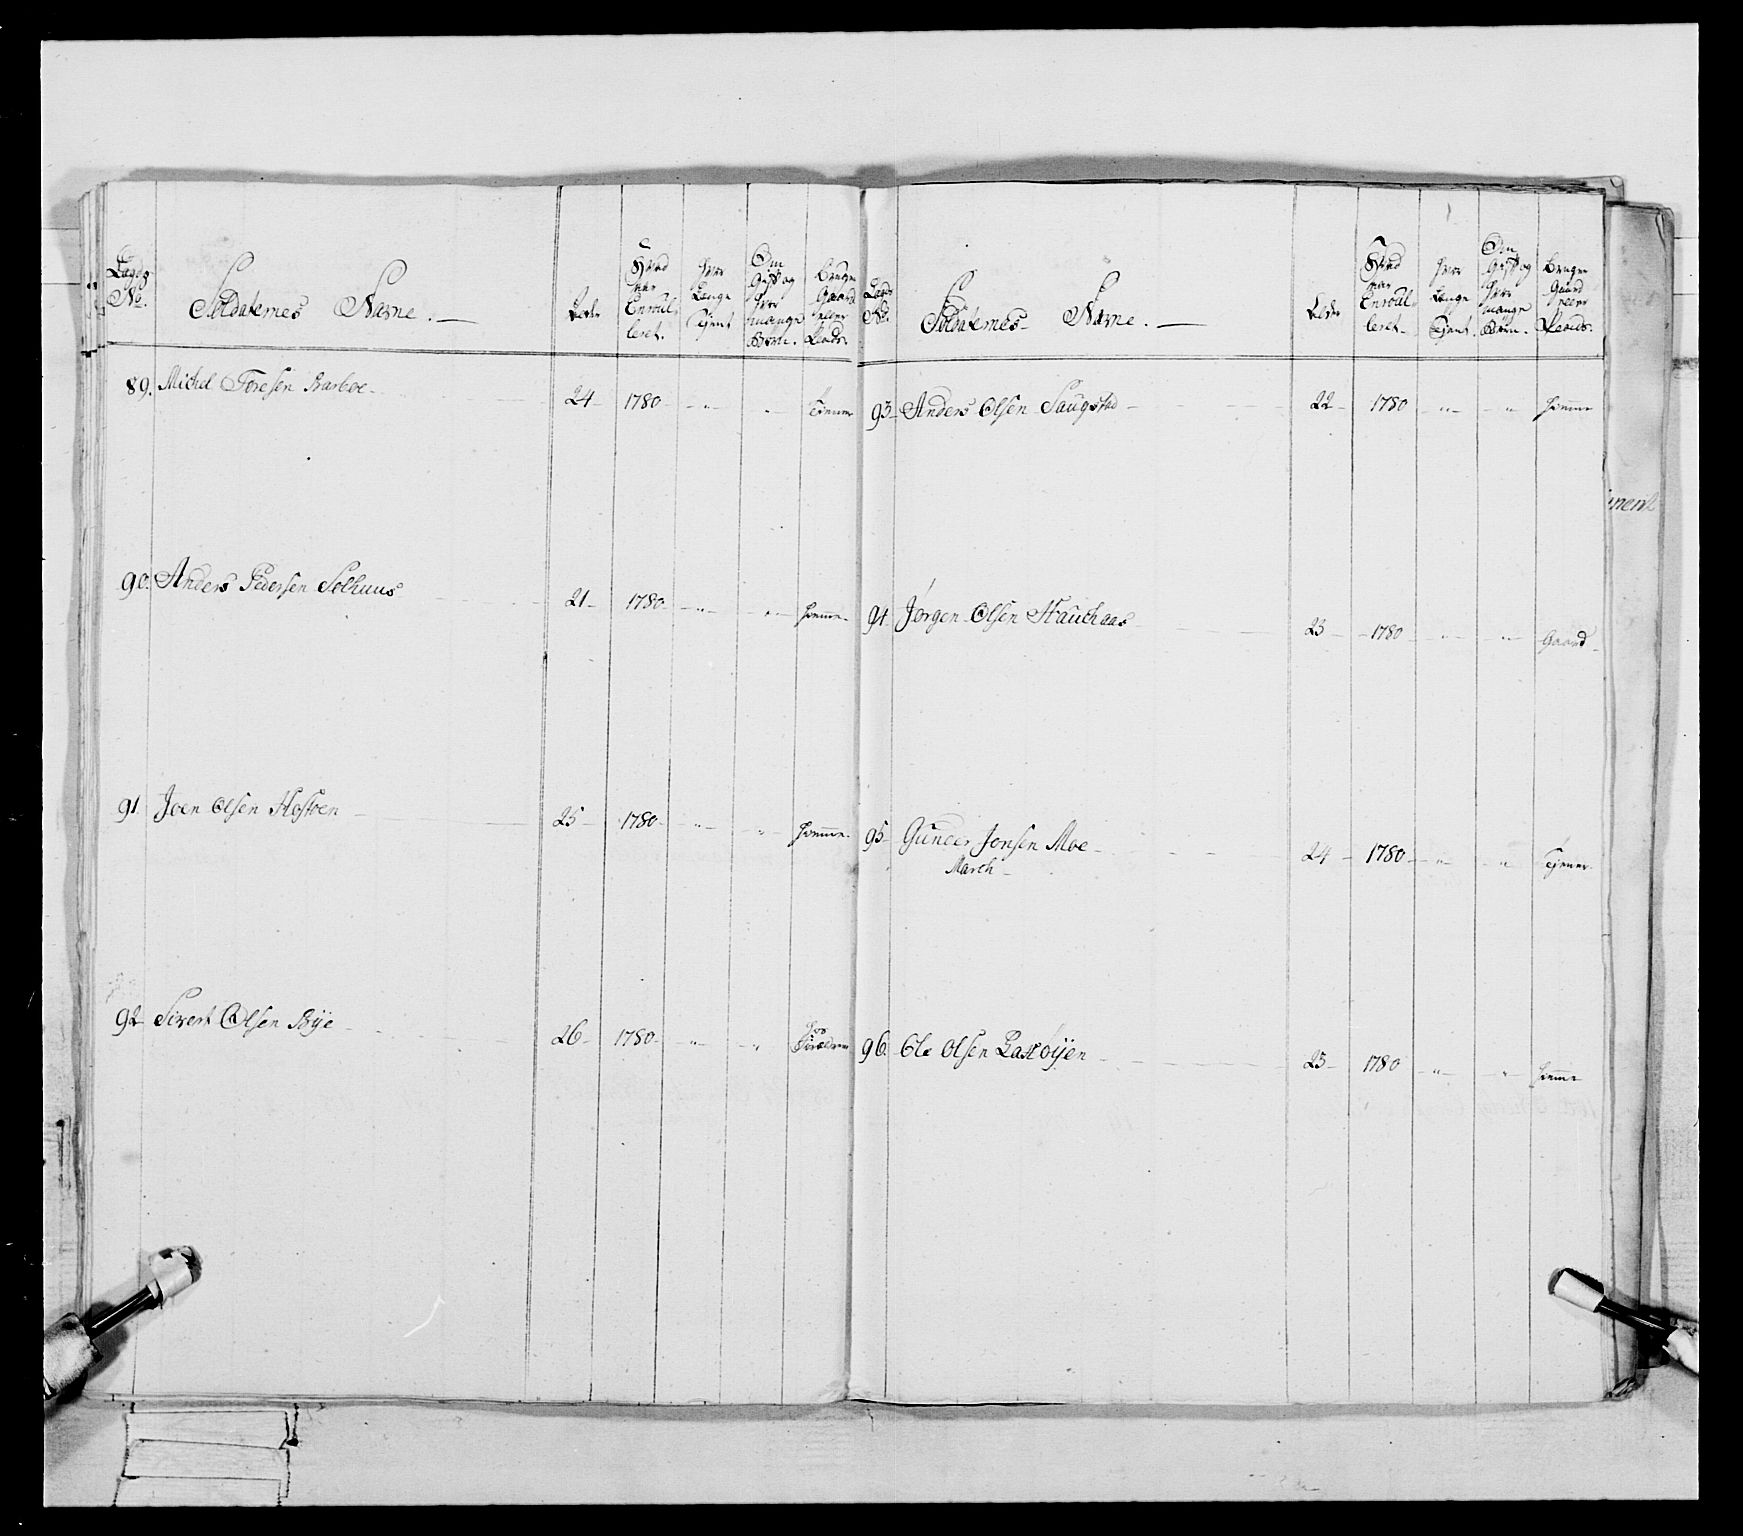 Lægds No. Soldaternes Navne. Alder Hvad Aar Enroulleret. Hvor Længe Tjent Om Gift og Hvor mange Børn. Bruger Gaard eller Plads.
89. Michel Toresen Barboe 24 1780 " " Tjener
90. Anders Pedersen Solhuus 21 1780 " " Hiemme
91 Joen Olsen Hostoen 25 1780 " " Hiemme
92 Sivert Olsen Bÿe 26 1780 " " Hos Forældrene
Lægds No. Soldaternes Navne. Alder Hvad Aar Enroulleret. Hvor Længe Tjent. Om Gift og Hvor mange Børn. Bruger Gaard eller Plads.
93 Anders Olsen Saugstad 22 1780 " " Hiemme
94 Jørgen Olsen Hauchaas 23 1780 " " Gaard
95 Gunder Jonsen Moe 24 1780 " " Tjener
March
96. Ole Olsen Lastøÿen 23 1780 " " Hiemme
ment